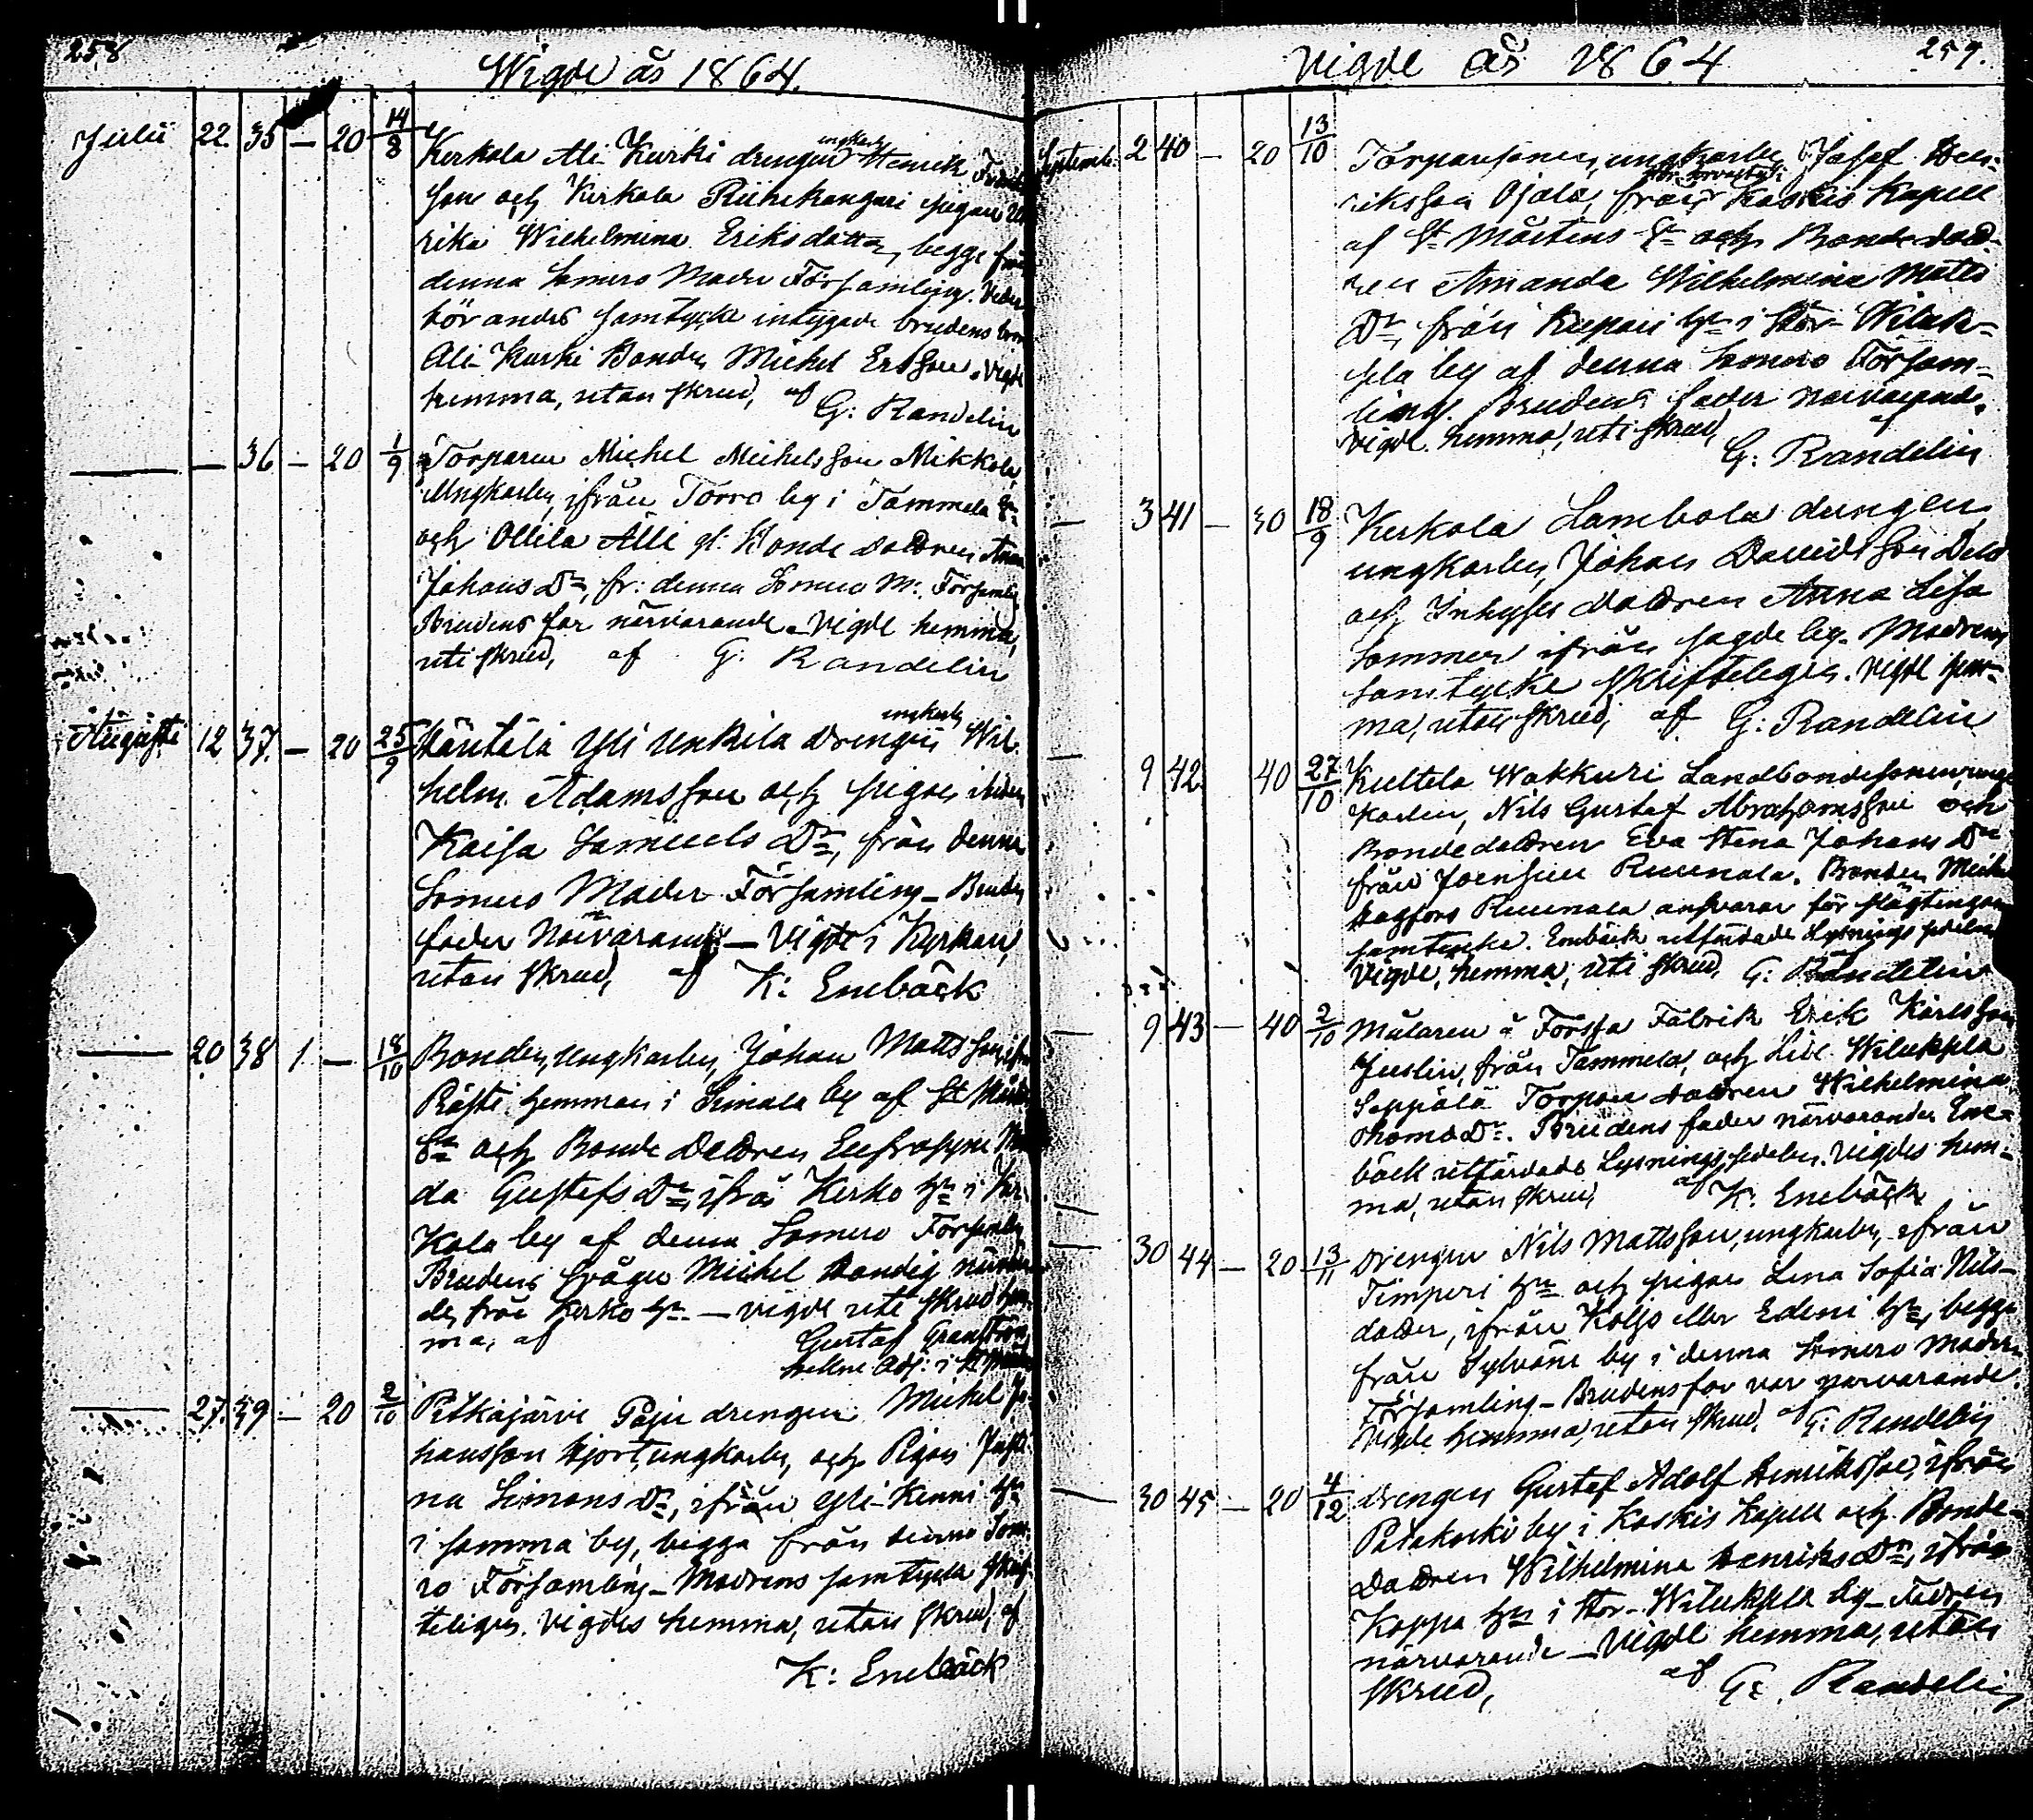 258
Wigde år 1864.
Julii 22. 35 – 20 14/8 Kerkola Ali Kurki drengen ungkarlen Henrik
son och Kerkola Riihikangari pigan
rika Wilhelmina Eriksdotter, begge från
denna Somero Moder Församling. Veder
börandes samtycke intygade brudens
Ali-Kurki Bonden Michel Ersson. Vigde
hemma, utan skrud, af G: Randelin
— — 36 – 20 1/9 Torparen Michel Michelsson Mikkola,
Ungkarlen, ifrån Torro by i Tammela Sn
och Ollila Alli gl: Bonde dottren
Johans Dr, fr: denna Somero M: Församling
Brudens far närvarande. Vigde hemma,
uti skrud, af G: Randelin
Augusti 12 37. – 20 25/9 Häntälä Yli Unkila drengen ungkarlen Wil-
helm Adamsson och pigan
Kaisa Samuels Dr, från denna
Somero Moder Församling – Brudens
fader Närvarande – Vigde i Kyrkan,
utan skrud, af K: Enebäck
— 20 38 1 – 18/10 Bonden, Ungkarlen, Johan Mattsson, ifrån
Räfti hemman i Simala by af St Mårtens
Sn och Bonde Dottren Eufrosyne
da Gustafs Dr, ifrån Kerko hn i Ker-
kola by af denna Somero Församling
Brudens svåger Michel
de, från Kerko hn. – vigde uti skrud hem-
ma, af Gustaf Granström,
Adj: i St Mårtens
— 27. 39 – 20 2/10 Pitkäjärvi Paju drengen Michel Jo-
hansson Hjort, ungkarlen, och Pigan
na Simons Dr, ifrån Yli-Kenni hn
i samma by, begge från denna Some-
ro Församling – Modrens samtycke skrif-
teligen. Vigdes hemma, utan skrud, af
K: Enebäck
Vigde år 1864
259.
September 2 40 – 20 13/10 Torparsonen, ungkarlen Josef Hen-
riksson Ojala, från Koskis Kapell
af St Mårtens Sn och Bonde dott-
ren Amanda Wilhelmina Matts
Dr, från Kupari hn i Stor-Wiluk-
sela by af denna Somero Försam-
ling. Brudens fader närvarande.
Vigde hemma, uti skrud, af
G: Randelin
— 3 41 – 30 18/9 Kerkola Lambola drengen
ungkarlen, Johan Davidsson
och Inhyses dottren Anna Lisa
Sommer ifrån sagde by. Modrens
samtycke skrifteligen. Vigde hem-
ma, utan skrud, af G: Randelin
— 9 42 40 27/10 Kultela Wakkuri Landbondesonen ung-
karlen, Nils Gustaf Abrahamsson och
Bondedottren Eva Stina Johans Dr
från Joensuu Ruunala. Bonden
Hagfors Ruunala ansvarar för slägtingens
samtycke. Enebäck utfärdade Lysnings sedeln
Vigde, hemma, uti skrud, G: Randelin
— 9 43 – 40 2/10 Målaren å Forssa Fabrik Erik Karlsson
Juslin, från Tammela, och Lill Wiluksela
Seppälä Torpare dottren Wilhelmina
Thomas Dr. Brudens fader närvarande. Ene-
bäck utfärdade Lysnings sedeln. Vigdes hem-
ma, utan skrud af K: Enebäck
— 30 44 – 20 13/11 Drengen Nils Mattsson, ungkarlen, ifrån
Timperi hn och pigan Lena Sofia Nils-
dotter, ifrån Kolso eller Edeni hn, begge
från Sylvänä by i denna Somero Moder
Församling – Brudens far var närvarande.
Vigde hemma, utan skrud, af G: Randelin
— 30 45 – 20 4/12 Drengen Gustaf Adolf Henriksson, ifrån
Patakoski by i Koskis Kapell och Bonde-
Dottren Wilhelmina Henriks Dr, ifrån
Koppa hn i Stor-Wiluksela by – Fadren
närvarande – Vigde hemma, utan
skrud, af G: Randelin